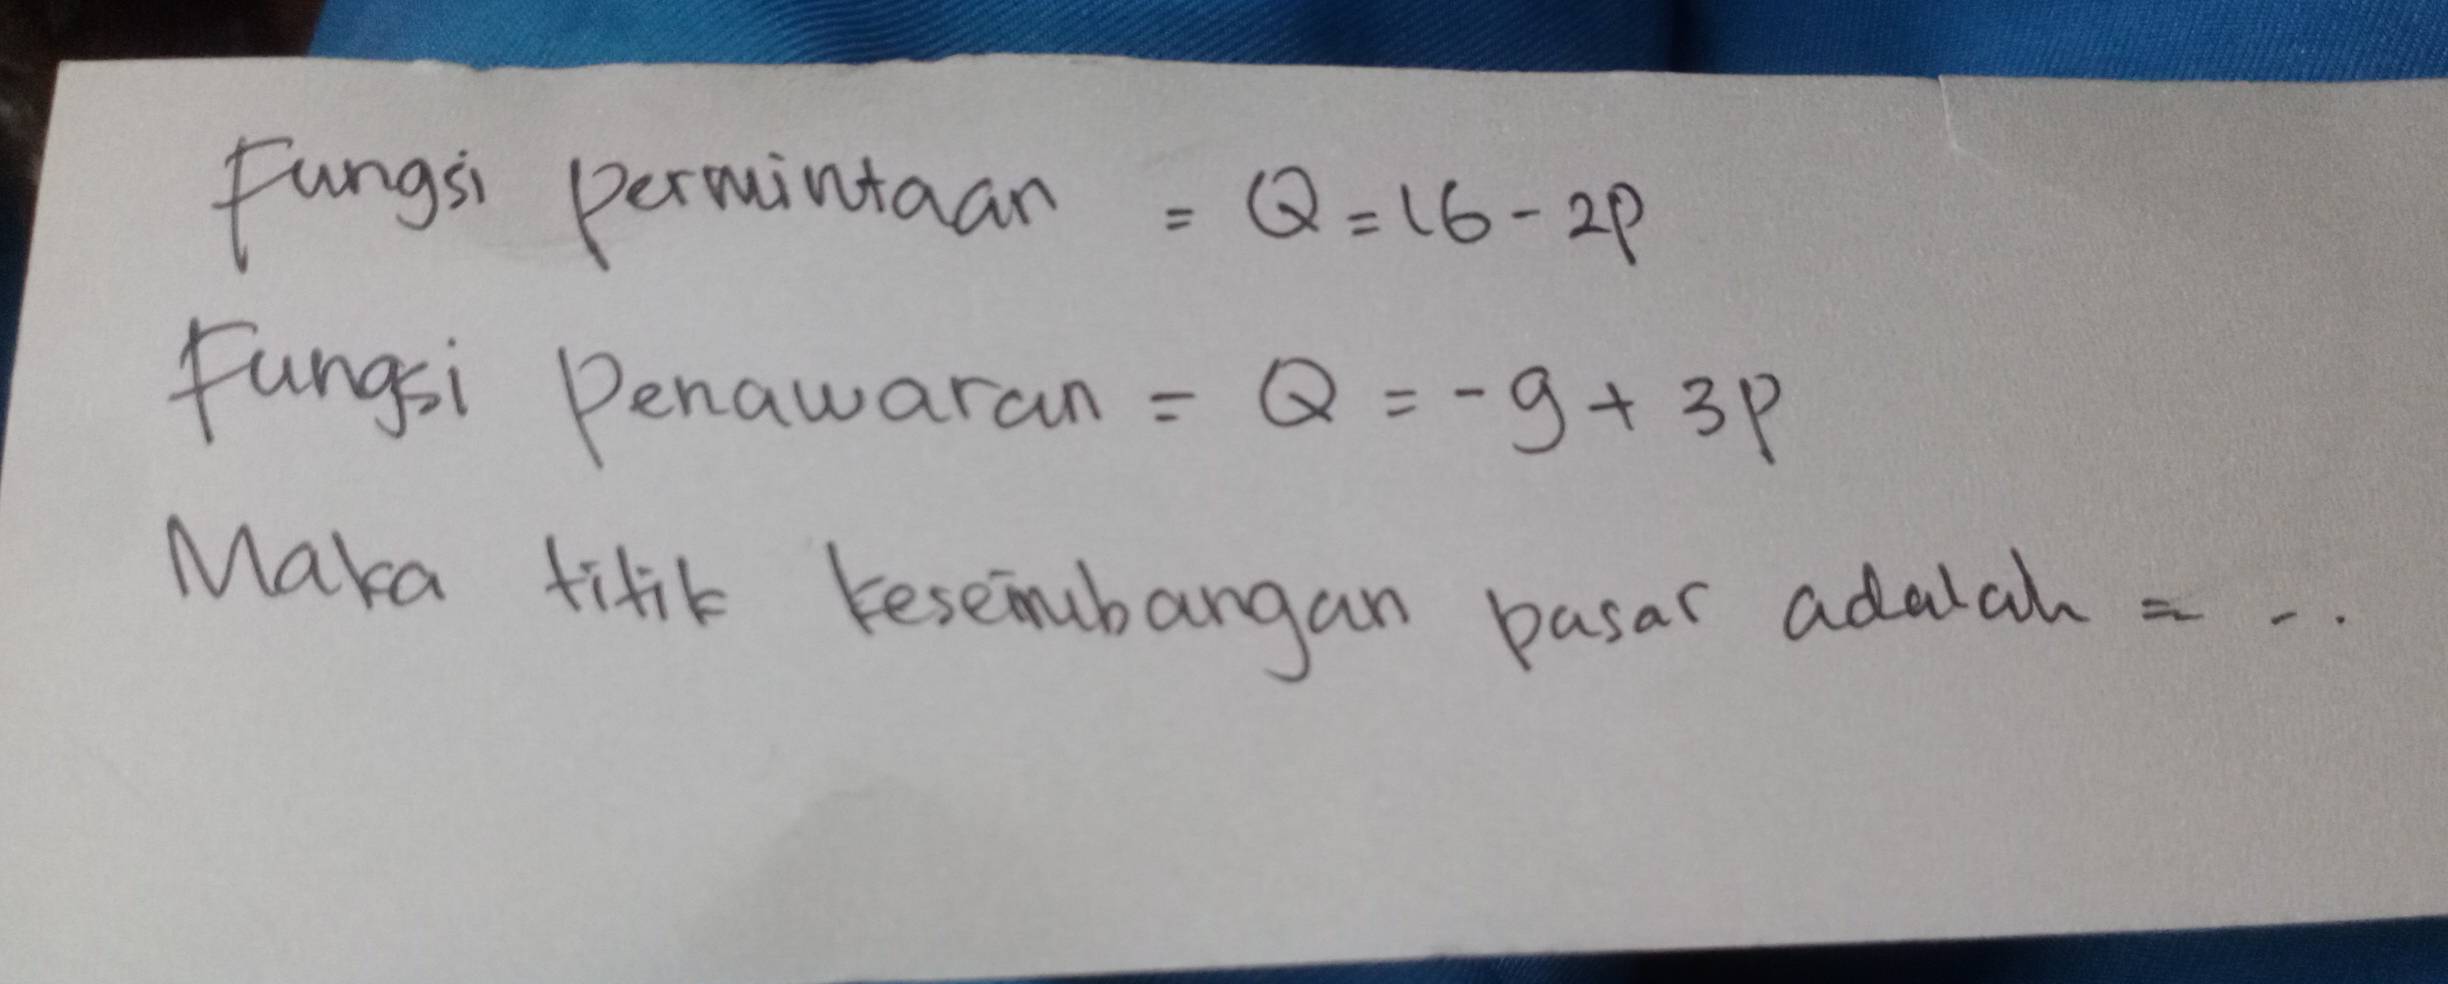 Fungsi permintaan = Q = 16 - 2p
Fungsi Penawaran = Q = - 9 + 3p
Maka titik keseimbangan pasar adalah = ...